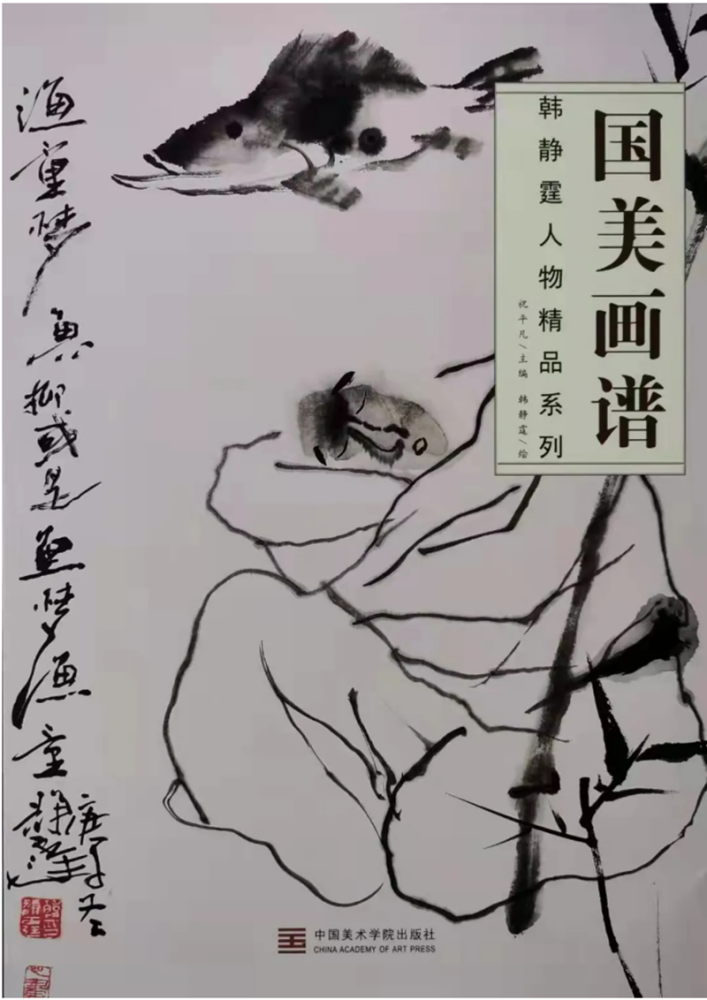 国美画谱
韩静霆人物精品系列
祝平凡/主编 韩静霆/绘
渔童梦鱼抑或是鱼梦渔童
庚子冬
静霆
中国美术学院出版社
CHINA ACADEMY OF ART PRESS